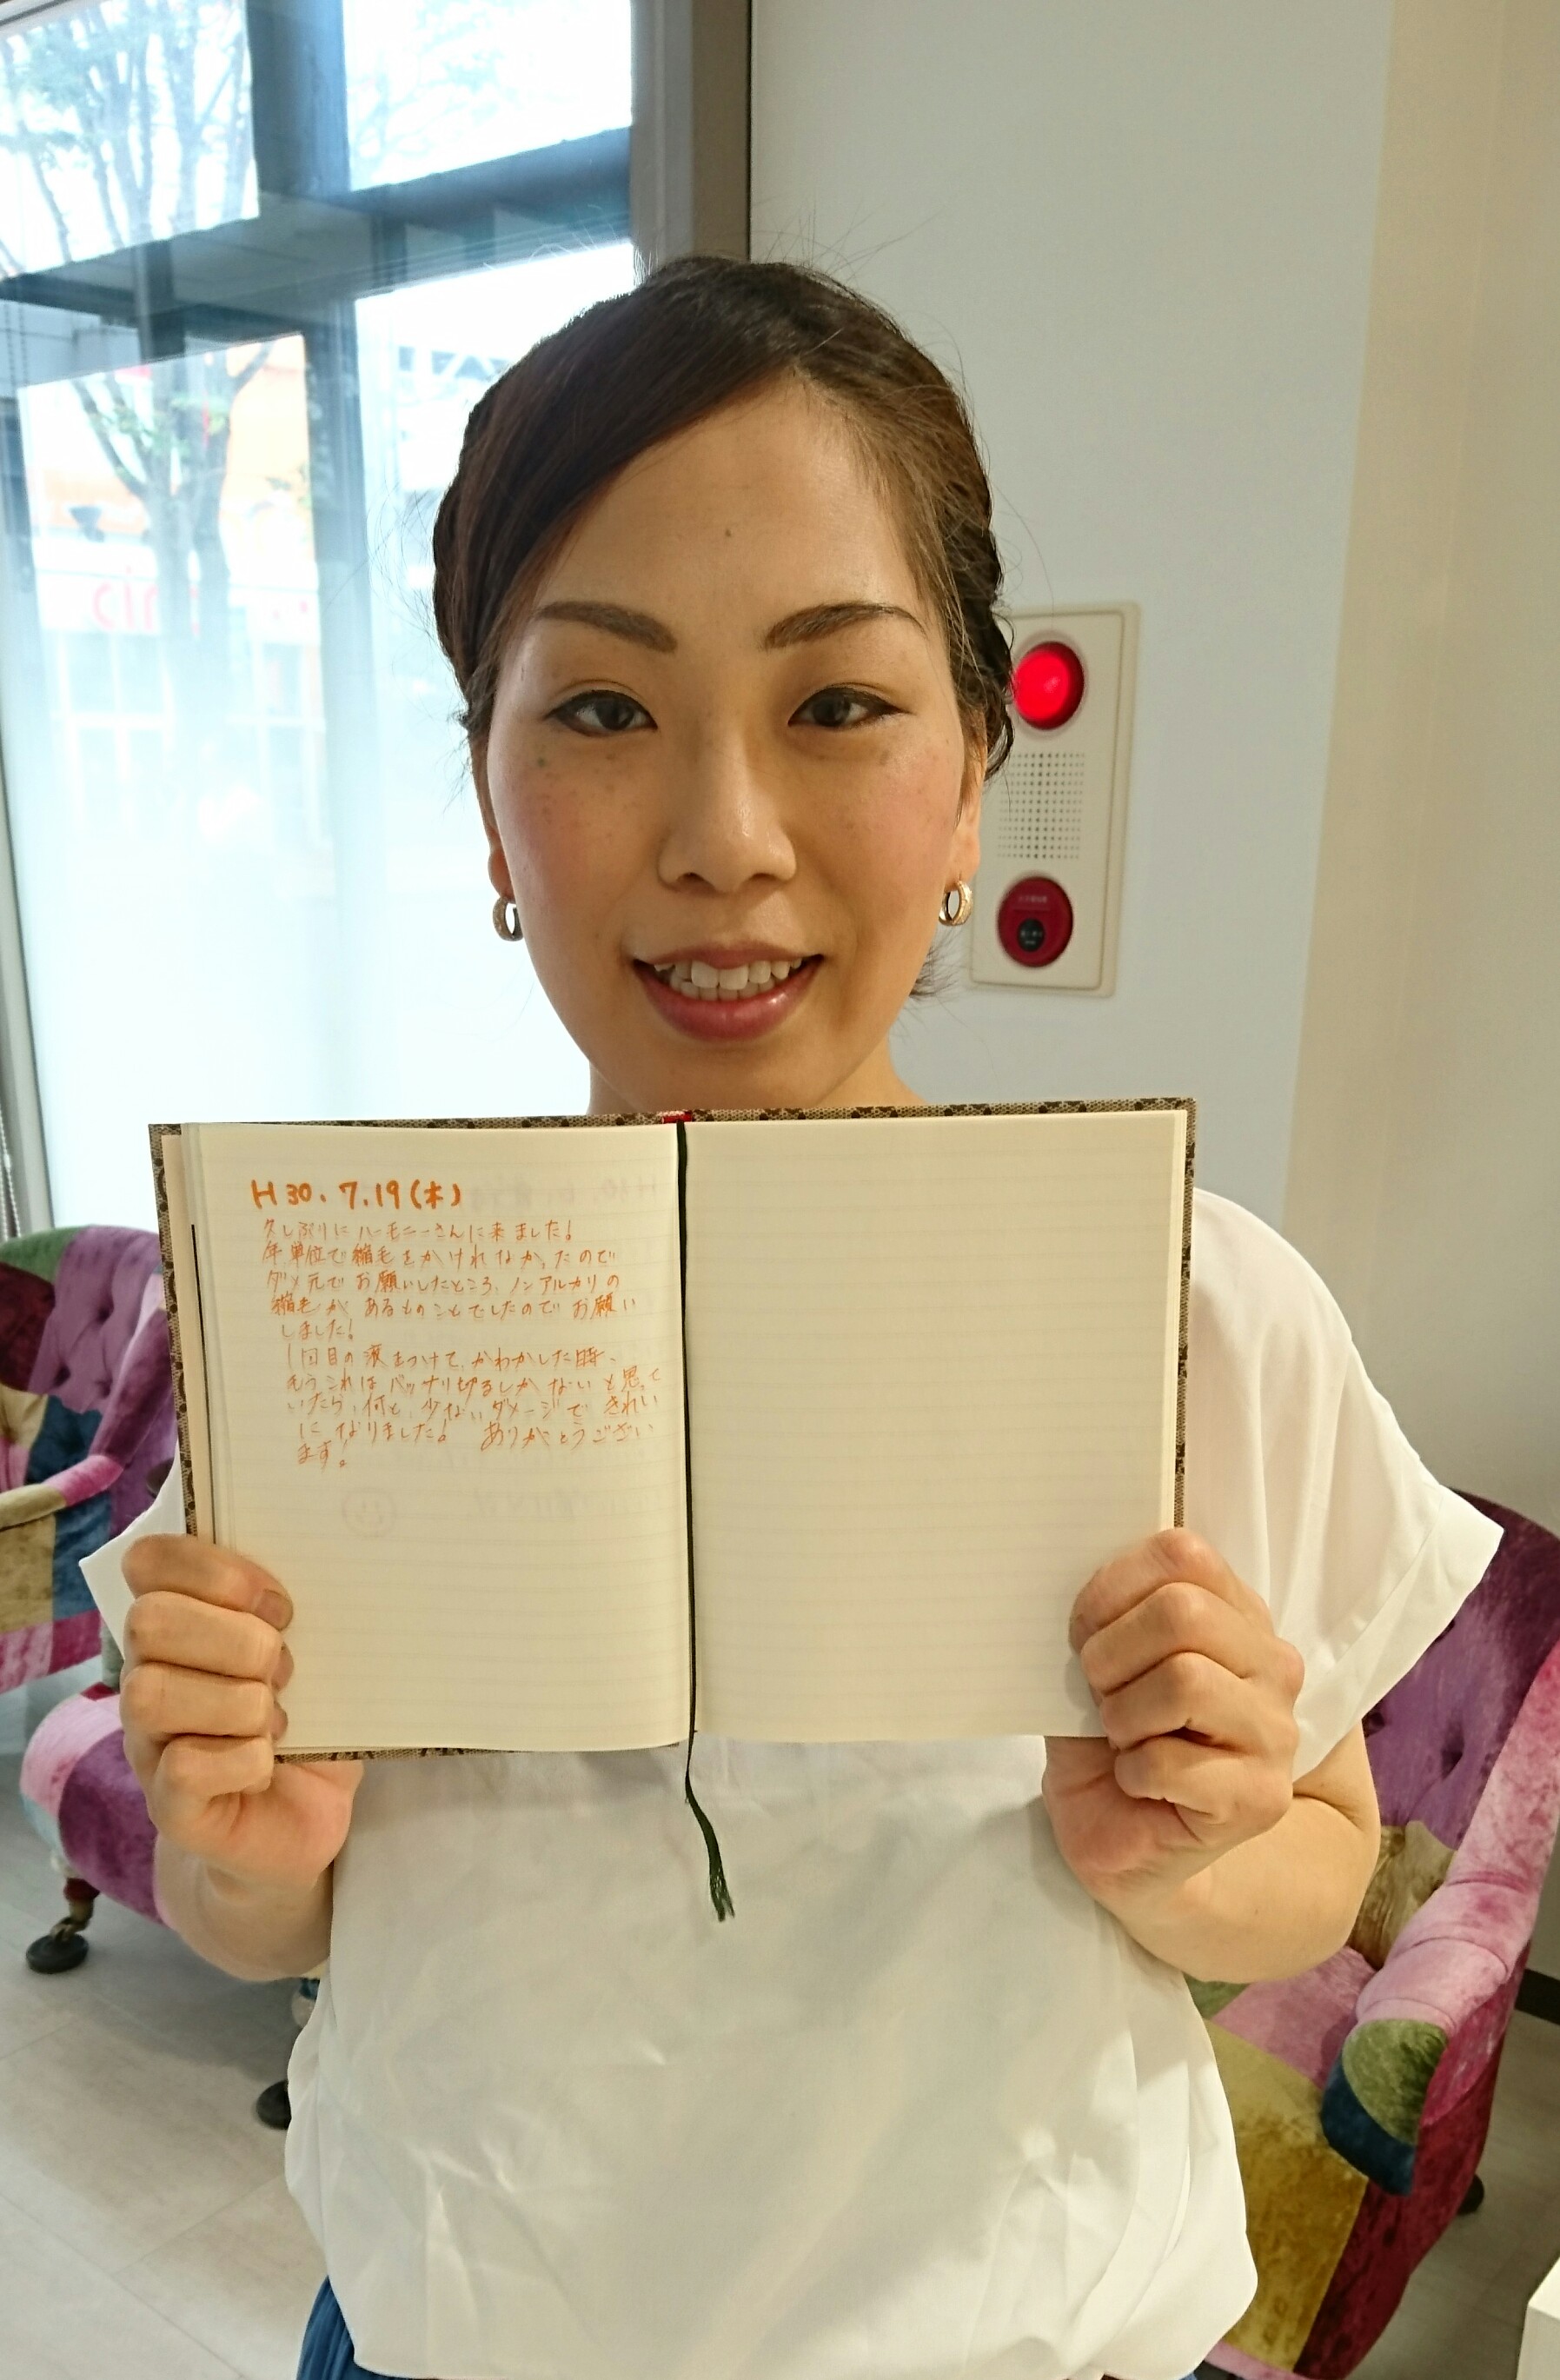 H30.7.19(木)
久しぶりにハーモニーさんに来ました!
年単位で縮毛をかけれなかったので
ダメ元でお願いしたところ、ノンアルカリの
縮毛があるとのことでしたのでお願い
しました!
1回目の液をつけて、かわかした時、
もうこれはバッサリ切るしかないと思って
いたら、何と、少ないダメージできれい
になりました! ありがとうござい
ます!